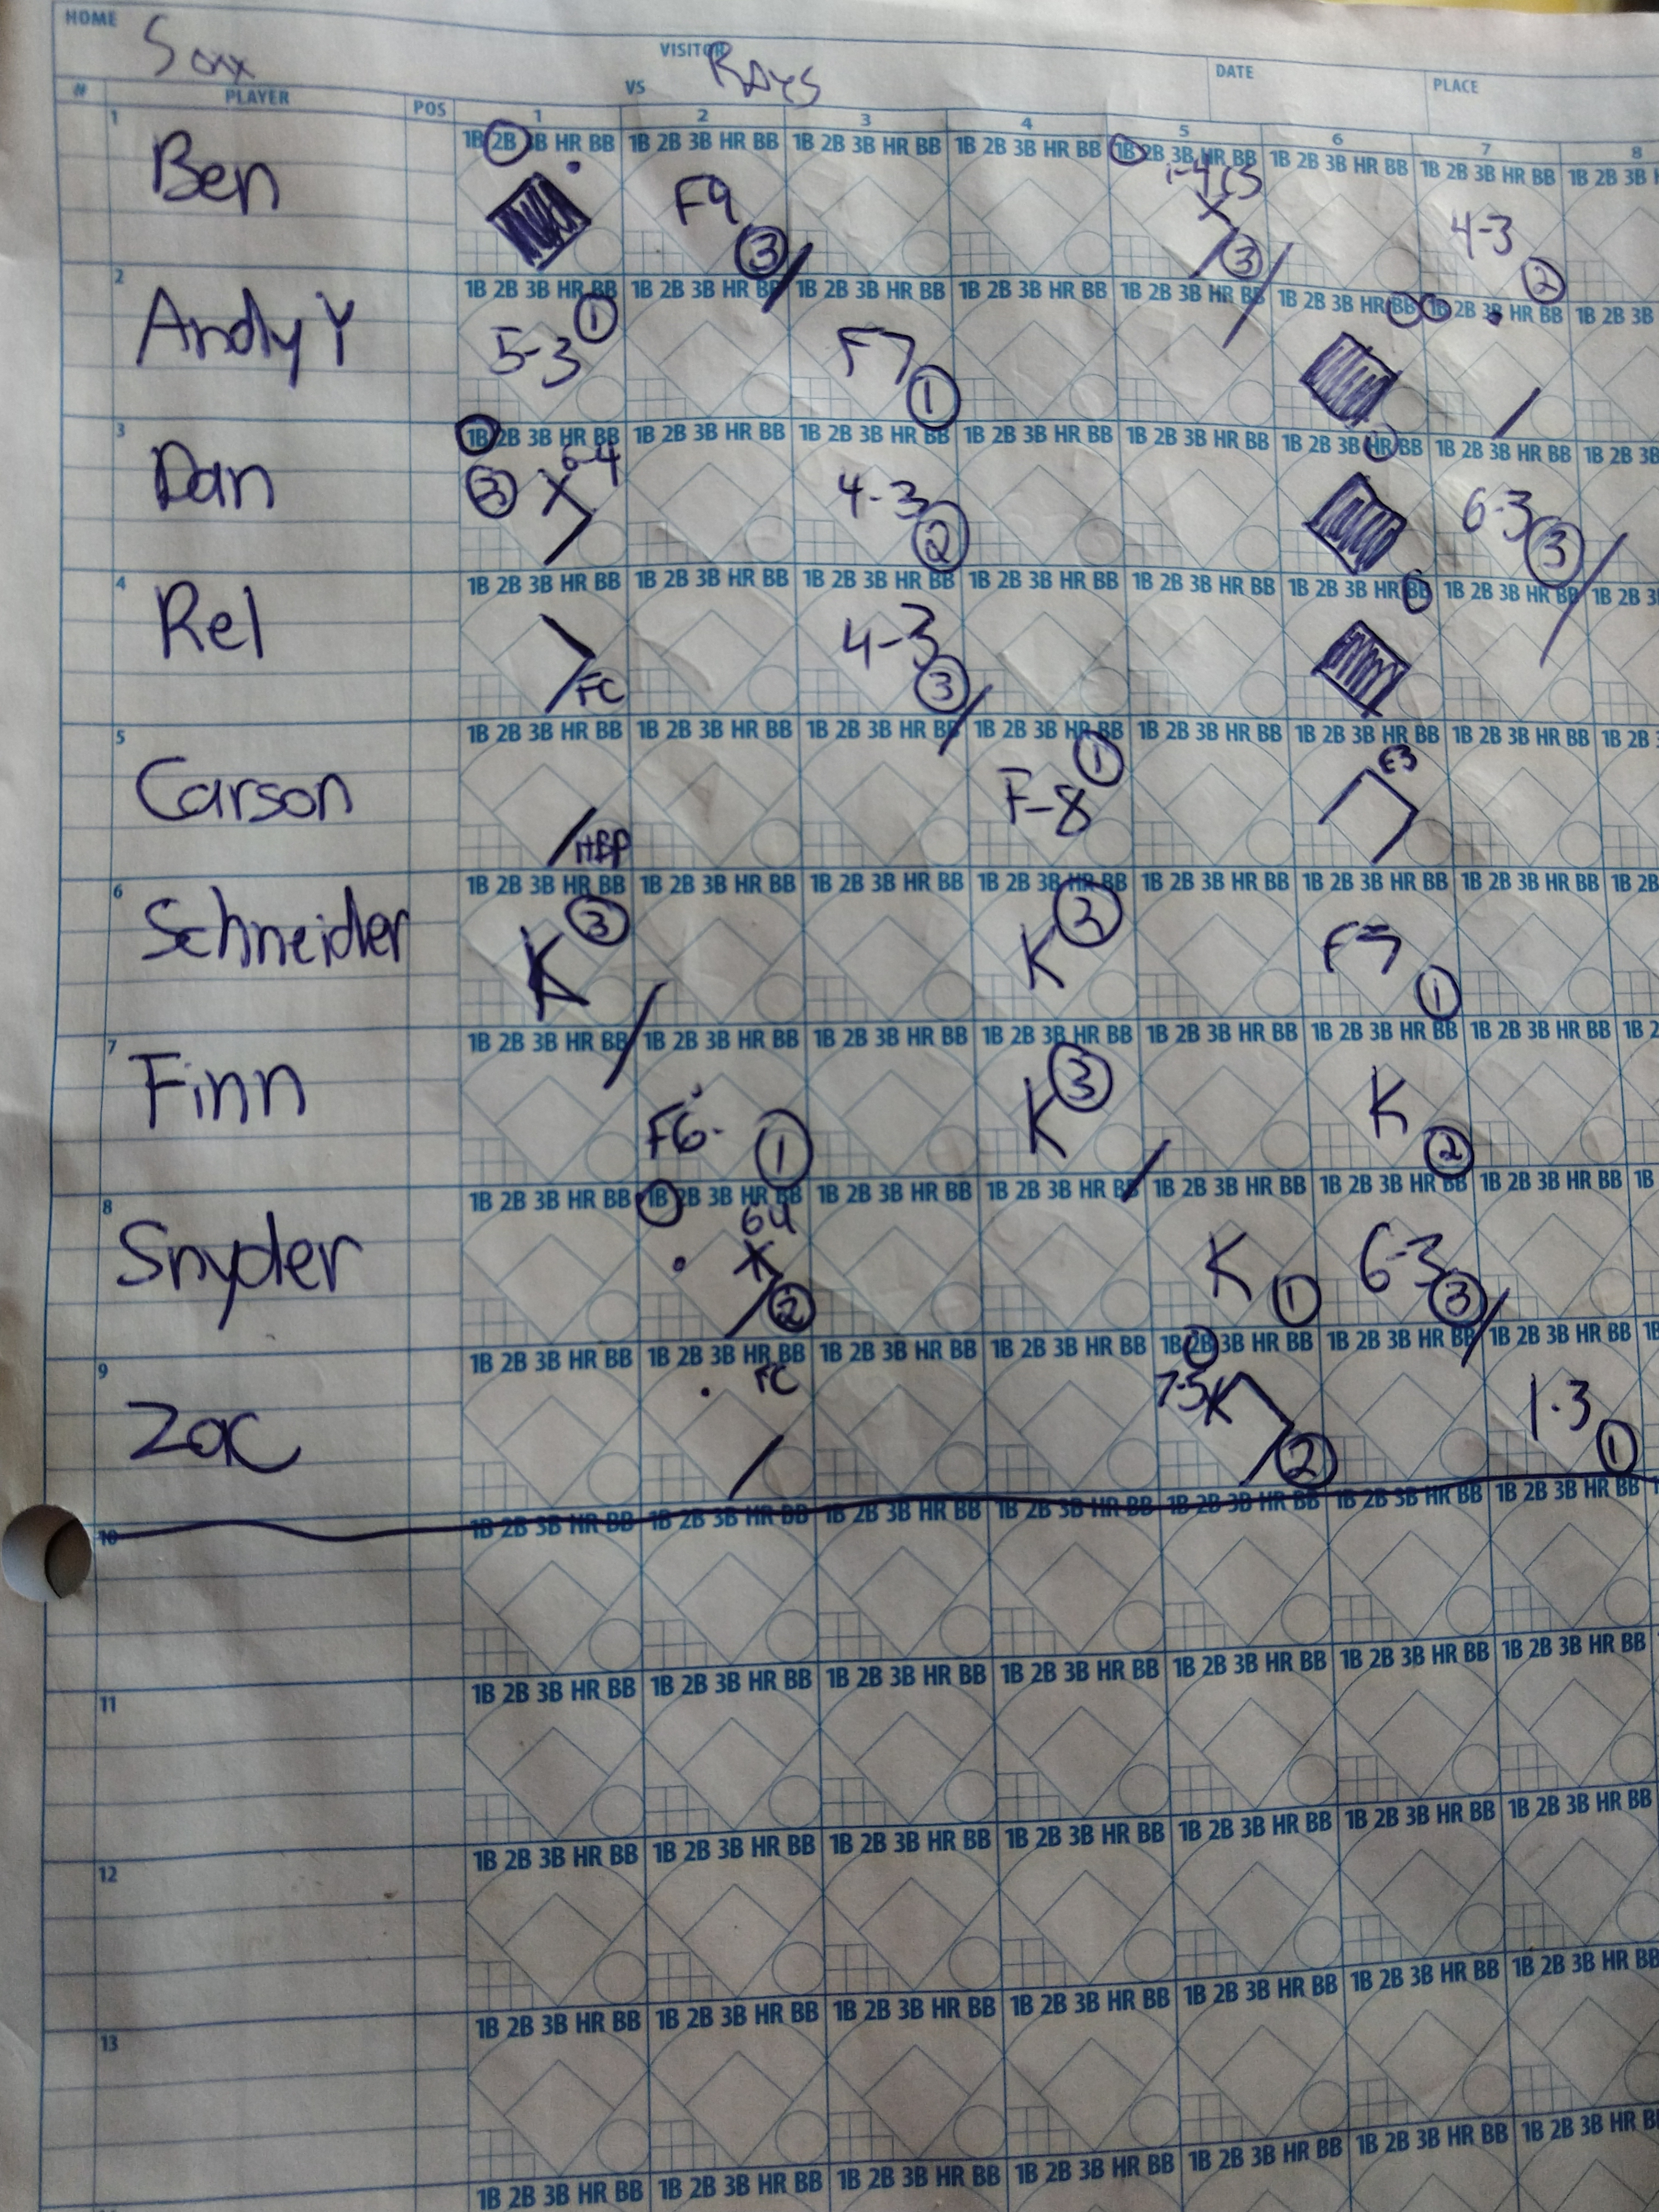 HOME Soxx VISITOR RAYS DATE PLACE
VS
# PLAYER POS 1 2 3 4 5 6 7 8
1 1B 2B 3B HR BB 1B 2B 3B HR BB 1B 2B 3B HR BB 1B 2B 3B HR BB 1B 2B 3B HR BB 1B 2B 3B HR BB 1B 2B 3B HR BB 1B 2B 3B
Ben F9 3 CS 3 4-3 2
2 1B 2B 3B HR BB 1B 2B 3B HR BB 1B 2B 3B HR BB 1B 2B 3B HR BB 1B 2B 3B HR BB 1B 2B 3B HR BB 1B 2B 3B HR BB 1B 2B 3B
Andy Y 5-3 1 F7 1
3 1B 2B 3B HR BB 1B 2B 3B HR BB 1B 2B 3B HR BB 1B 2B 3B HR BB 1B 2B 3B HR BB 1B 2B 3B HR BB 1B 2B 3B HR BB 1B 2B 3B
Dan 6-4 4-3 2 6-3 3
4 1B 2B 3B HR BB 1B 2B 3B HR BB 1B 2B 3B HR BB 1B 2B 3B HR BB 1B 2B 3B HR BB 1B 2B 3B HR BB 1B 2B 3B HR BB 1B 2B 3
Rel FC 4-3 3
5 1B 2B 3B HR BB 1B 2B 3B HR BB 1B 2B 3B HR BB 1B 2B 3B HR BB 1B 2B 3B HR BB 1B 2B 3B HR BB 1B 2B 3B HR BB 1B 2B
Carson HBP F-8 1 E3
6 1B 2B 3B HR BB 1B 2B 3B HR BB 1B 2B 3B HR BB 1B 2B 3B HR BB 1B 2B 3B HR BB 1B 2B 3B HR BB 1B 2B 3B HR BB 1B 2B
Schneider K 3 K 2 1
7 1B 2B 3B HR BB 1B 2B 3B HR BB 1B 2B 3B HR BB 1B 2B 3B HR BB 1B 2B 3B HR BB 1B 2B 3B HR BB 1B 2B 3B HR BB 1B 2
Finn F6 1 K 3 K 2
8 1B 2B 3B HR BB 1B 2B 3B HR BB 1B 2B 3B HR BB 1B 2B 3B HR BB 1B 2B 3B HR BB 1B 2B 3B HR BB 1B 2B 3B HR BB 1B
Snyder 64 2 K 1 6-3 3
9 1B 2B 3B HR BB 1B 2B 3B HR BB 1B 2B 3B HR BB 1B 2B 3B HR BB 1B 2B 3B HR BB 1B 2B 3B HR BB 1B 2B 3B HR BB 1B
Zac FC 7-5 2 1-3 1
10 1B 2B 3B HR BB 1B 2B 3B HR BB 1B 2B 3B HR BB 1B 2B 3B HR BB 1B 2B 3B HR BB 1B 2B 3B HR BB 1B 2B 3B HR BB
11 1B 2B 3B HR BB 1B 2B 3B HR BB 1B 2B 3B HR BB 1B 2B 3B HR BB 1B 2B 3B HR BB 1B 2B 3B HR BB 1B 2B 3B HR BB
12 1B 2B 3B HR BB 1B 2B 3B HR BB 1B 2B 3B HR BB 1B 2B 3B HR BB 1B 2B 3B HR BB 1B 2B 3B HR BB 1B 2B 3B HR BB
13 1B 2B 3B HR BB 1B 2B 3B HR BB 1B 2B 3B HR BB 1B 2B 3B HR BB 1B 2B 3B HR BB 1B 2B 3B HR BB 1B 2B 3B HR BB
1B 2B 3B HR BB 1B 2B 3B HR BB 1B 2B 3B HR BB 1B 2B 3B HR BB 1B 2B 3B HR BB 1B 2B 3B HR BB 1B 2B 3B HR B